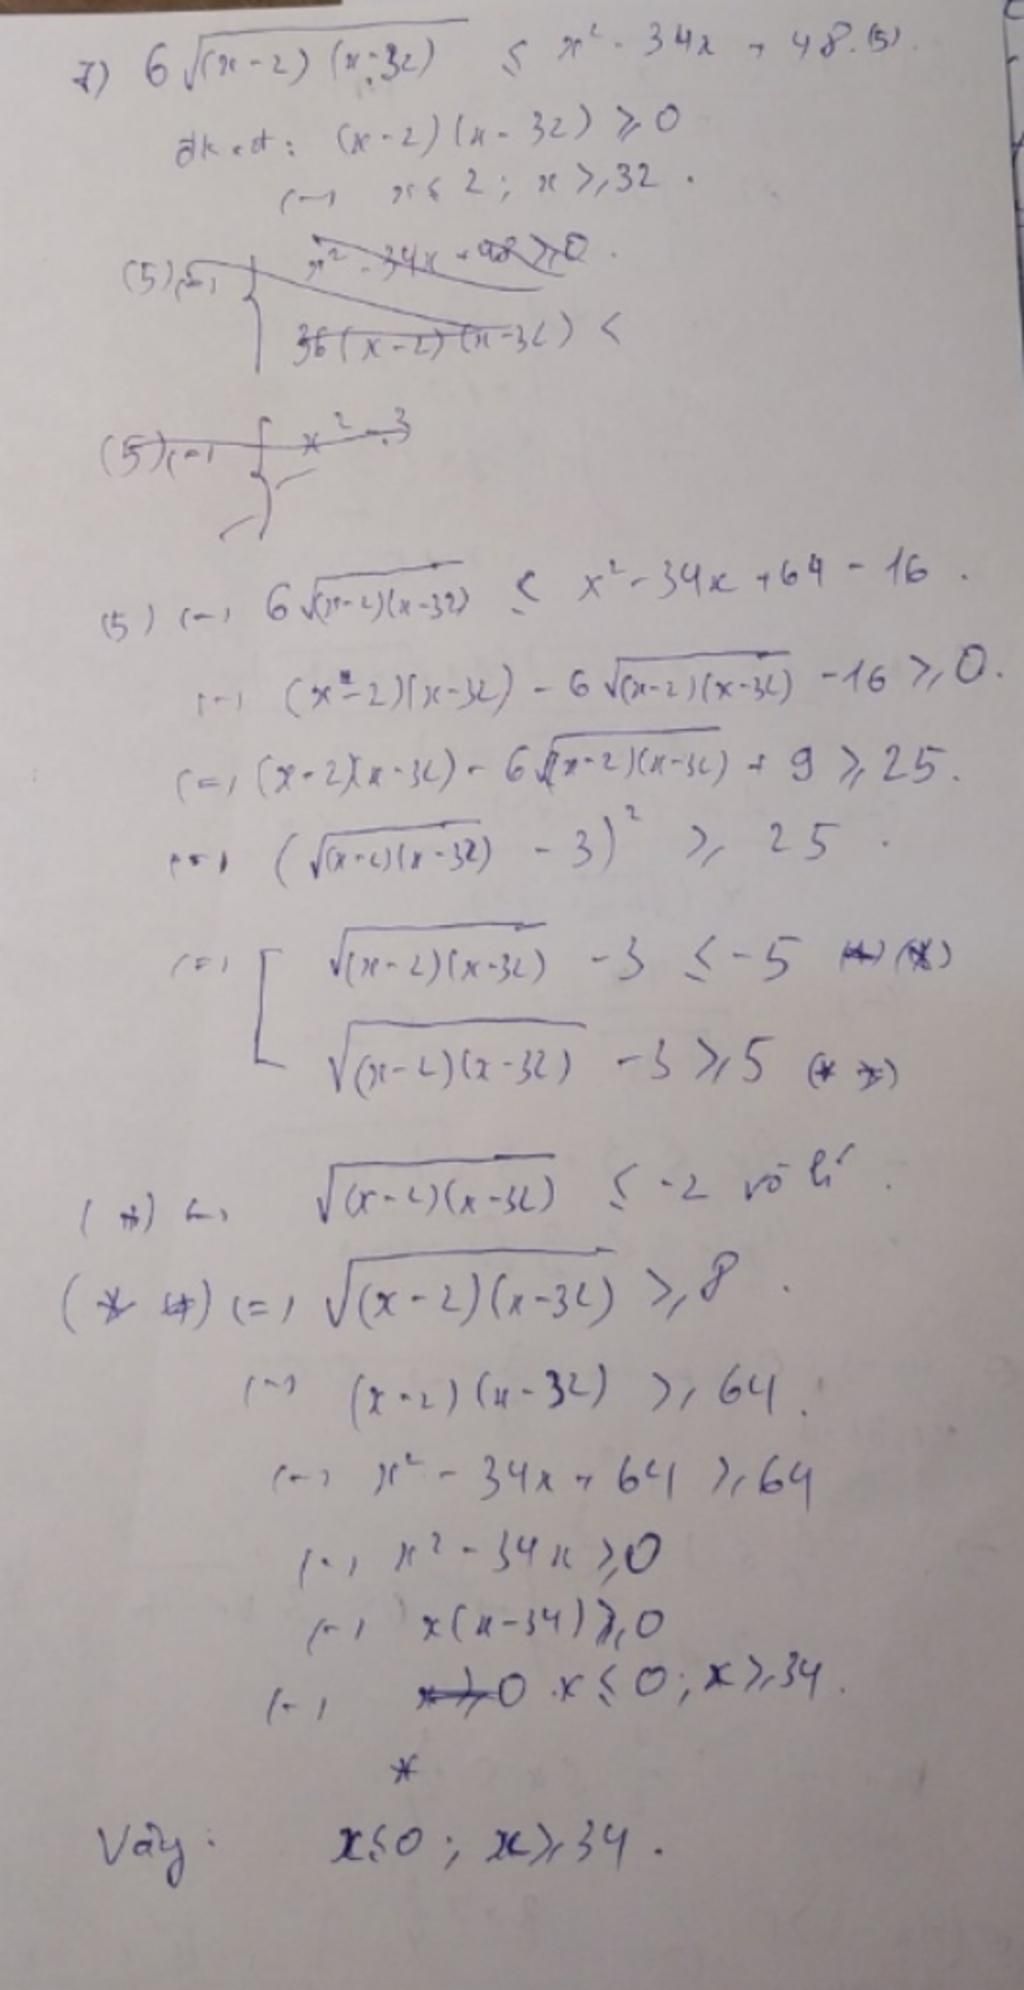 7) 6√((x-2)(x-32)) ≤ x² - 34x + 48. (5).
đk xđ: (x-2)(x-32) ≥ 0
(=) x ≤ 2 ; x ≥ 32 .
(5) (=) { x² - 34x + 48 ≥ 0 .
36(x-2)(x-32) ≤
(5) (=) { x² - 3
(5) (=) 6√((x-2)(x-32)) ≤ x² - 34x + 64 - 16 .
(=) (x-2)(x-32) - 6√((x-2)(x-32)) - 16 ≥ 0.
(=) (x-2)(x-32) - 6√((x-2)(x-32)) + 9 ≥ 25.
(=) (√((x-2)(x-32)) - 3)² ≥ 25 .
(=) [ √((x-2)(x-32)) - 3 ≤ -5 (*)
√((x-2)(x-32)) - 3 ≥ 5 (**)
(*) (=) √((x-2)(x-32)) ≤ -2 vô lí .
(**) (=) √((x-2)(x-32)) ≥ 8 .
(=) (x-2)(x-32) ≥ 64 .
(=) x² - 34x + 64 ≥ 64
(=) x² - 34x ≥ 0
(=) x(x-34) ≥ 0
(=) x ≥ 0 . x ≤ 0 ; x ≥ 34 .
*
Vậy : x ≤ 0 ; x ≥ 34 .